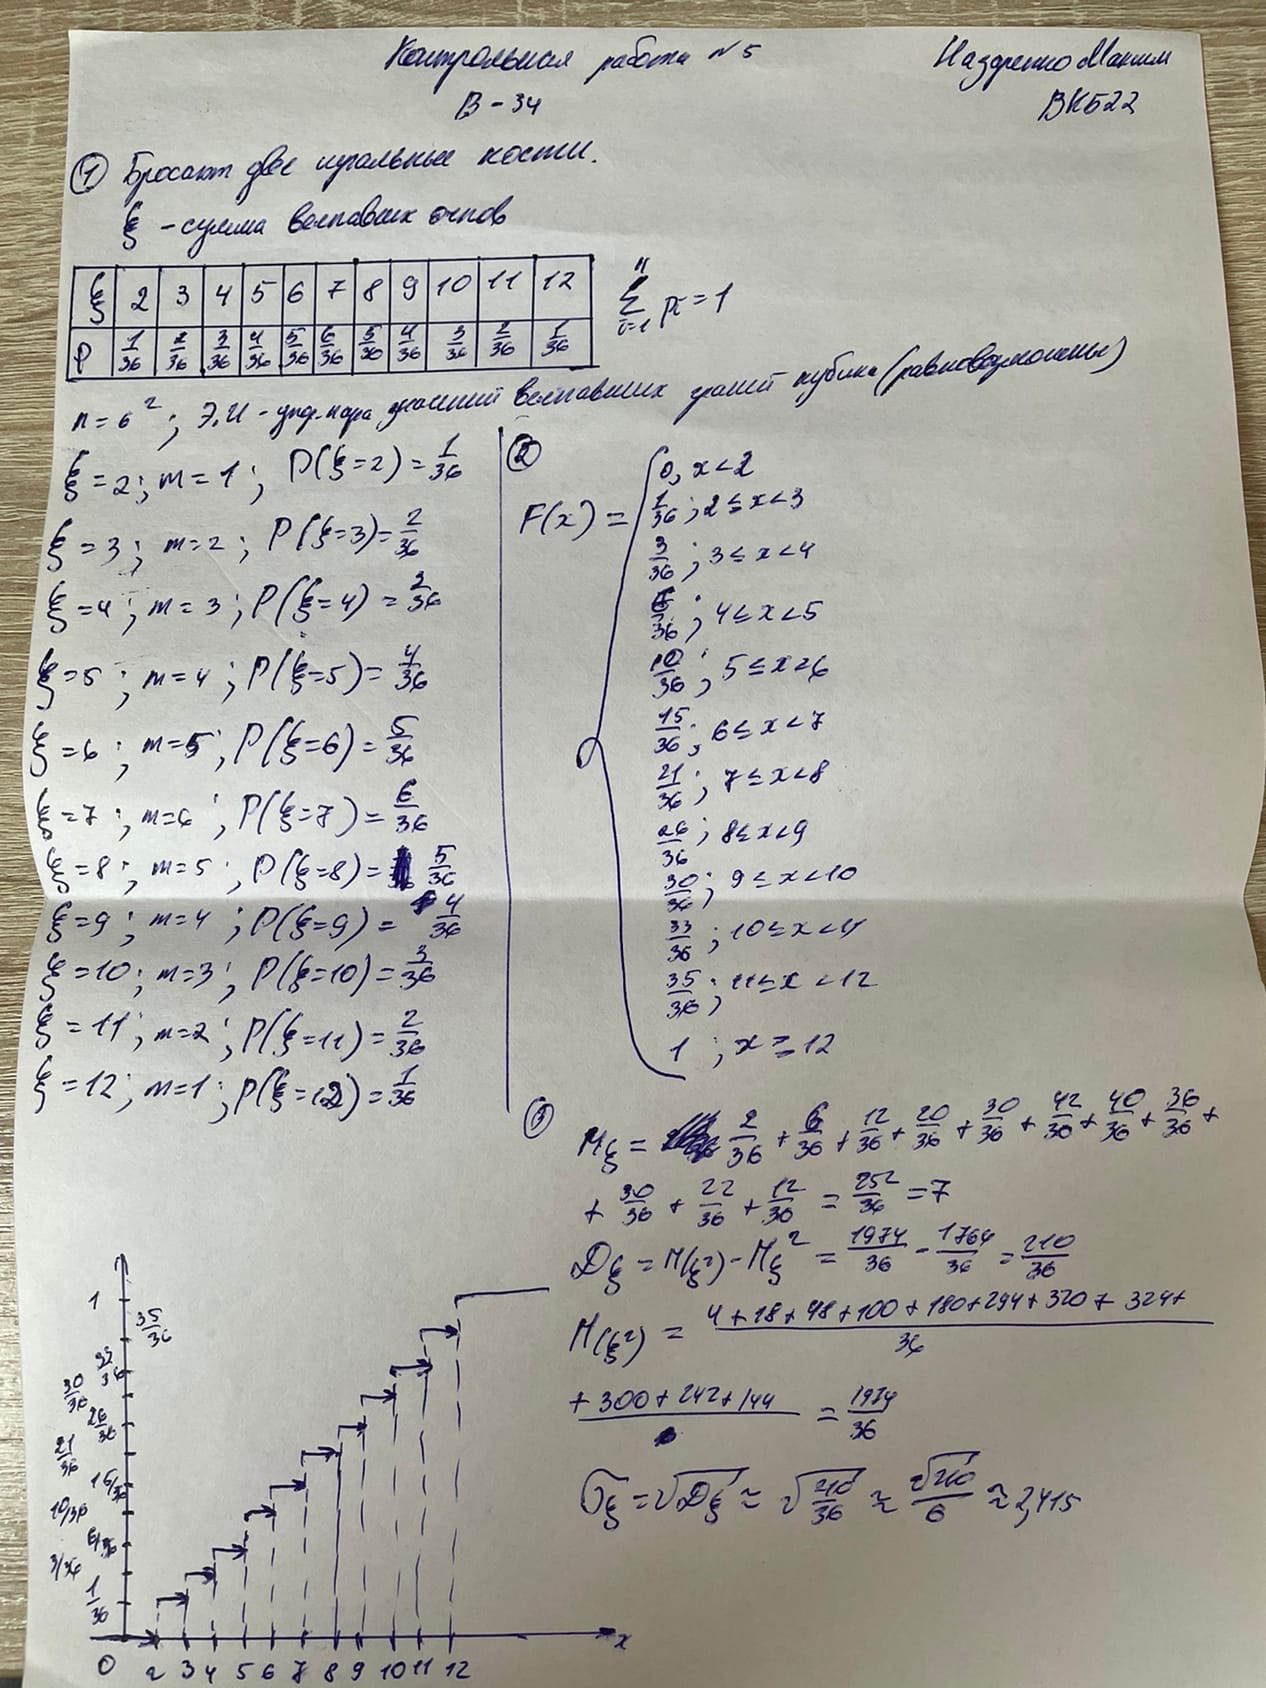 Контрольная работа №5
Назаренко Максим
В-34
ВКБ22
① Бросают две игральные кости.
ξ - сумма выпавших очков
ξ 2 3 4 5 6 7 8 9 10 11 12
P 1/36 2/36 3/36 4/36 5/36 6/36 5/36 4/36 3/36 2/36 1/36
11 Σ i=1 pi = 1
n = 6² ; Э.И - упор. пара значений выпавших граней кубика (равновозможны)
ξ = 2; m = 1 ; P(ξ=2) = 1/36
ξ = 3; m = 2 ; P(ξ=3) = 2/36
ξ = 4; m = 3 ; P(ξ=4) = 3/36
ξ = 5 ; m = 4 ; P(ξ=5) = 4/36
ξ = 6 ; m = 5 ; P(ξ=6) = 5/36
ξ = 7 ; m = 6 ; P(ξ=7) = 6/36
ξ = 8 ; m = 5 ; P(ξ=8) = 5/36
ξ = 9 ; m = 4 ; P(ξ=9) = 4/36
ξ = 10; m = 3 ; P(ξ=10) = 3/36
ξ = 11; m = 2 ; P(ξ=11) = 2/36
ξ = 12; m = 1 ; P(ξ=12) = 1/36
②
F(x) =
0, x < 2
1/36 ; 2 ≤ x < 3
3/36 ; 3 ≤ x < 4
6/36 ; 4 ≤ x < 5
10/36 ; 5 ≤ x < 6
15/36 ; 6 ≤ x < 7
21/36 ; 7 ≤ x < 8
26/36 ; 8 ≤ x < 9
30/36 ; 9 ≤ x < 10
33/36 ; 10 ≤ x < 11
35/36 ; 11 ≤ x < 12
1 ; x ≥ 12
③ Mξ = 2/36 + 6/36 + 12/36 + 20/36 + 30/36 + 42/36 + 40/36 + 36/36 +
+ 30/36 + 22/36 + 12/36 = 252/36 = 7
Dξ = M(ξ²) - Mξ² = 1974/36 - 1764/36 = 210/36
M(ξ²) = 4+18+48+100+180+294+320+324+ / 36
+ 300+242+144 = 1974/36
σξ = √Dξ ≈ √210/36 ≈ √210/6 ≈ 2,415
1
35/36
33/36
30/36
26/36
21/36
15/36
10/36
6/36
3/36
1/36
0 2 3 4 5 6 7 8 9 10 11 12 x